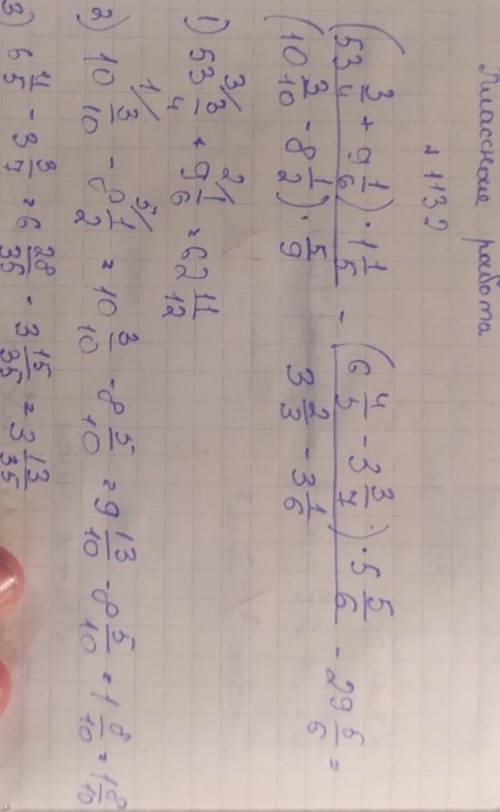 Классная работа
№ 1132
(53 3/4 + 9 1/6) · 1 1/5 / (10 3/10 - 8 1/2) · 5/9 - (6 4/5 - 3 3/7) · 5 5/6 / 3 2/3 - 3 1/6 - 29 6/6 =
1) 53 3/4 + 9 1/6 = 62 11/12
2) 10 3/10 - 8 1/2 = 10 3/10 - 8 5/10 = 9 13/10 - 8 5/10 = 1 8/10 = 1 8/10
3) 6 4/5 - 3 3/7 = 6 28/35 - 3 15/35 = 3 13/35